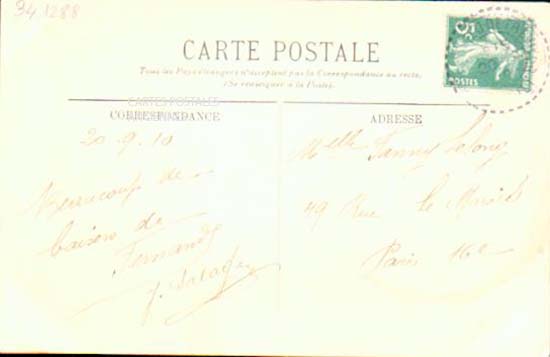 34 1288
CARTE POSTALE
Tous les Pays étrangers n'acceptent pas la Correspondance au recto.
(Se renseigner à la Poste).
CARTES POSTALES
CORRESPONDANCE
20-9-10
Beaucoup de
baisers de
Fernande
ADRESSE
Melle Fanny Lelong
49 Rue
Paris 16e
5
POSTES